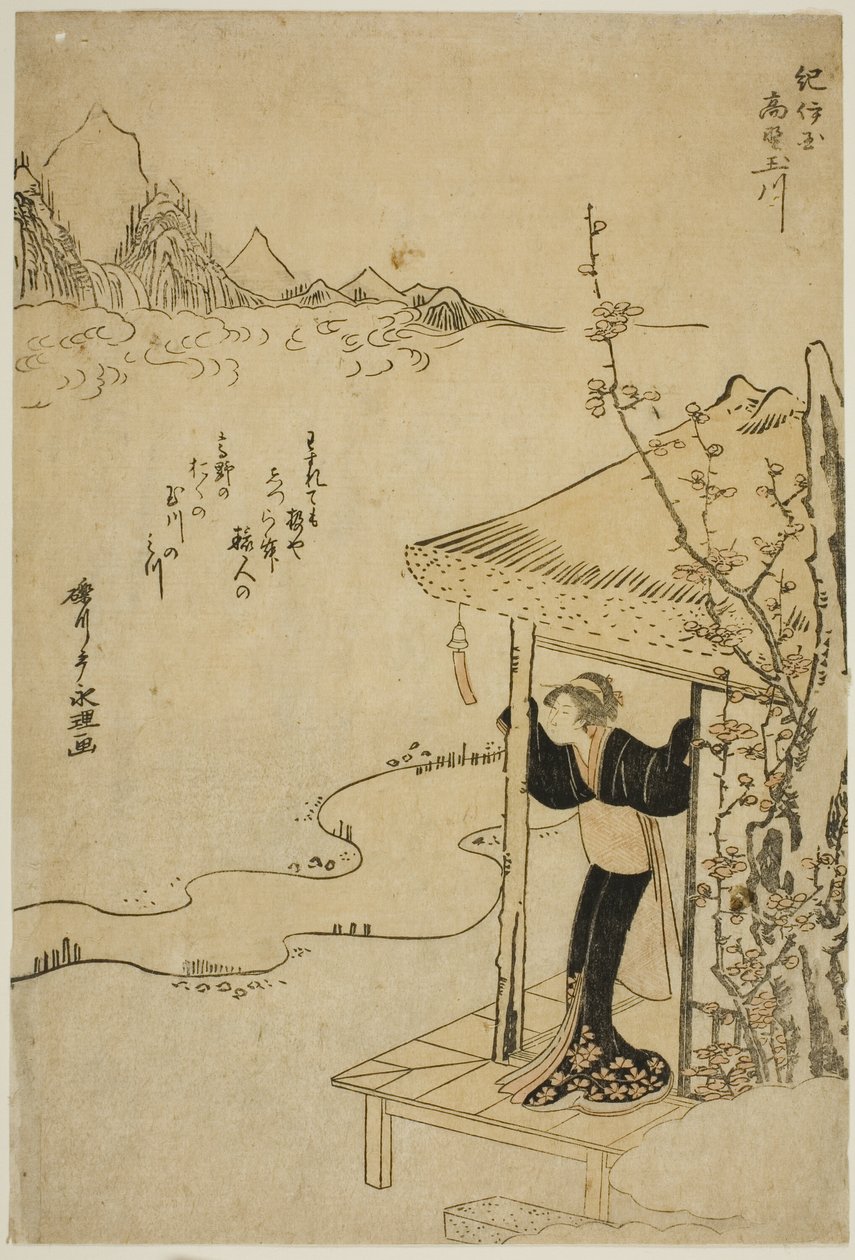 紀伊国
高野玉川
わすれても
汲や
しつらん
旅人の
高野の
おくの
玉川の
みづ
礫川亭永理画